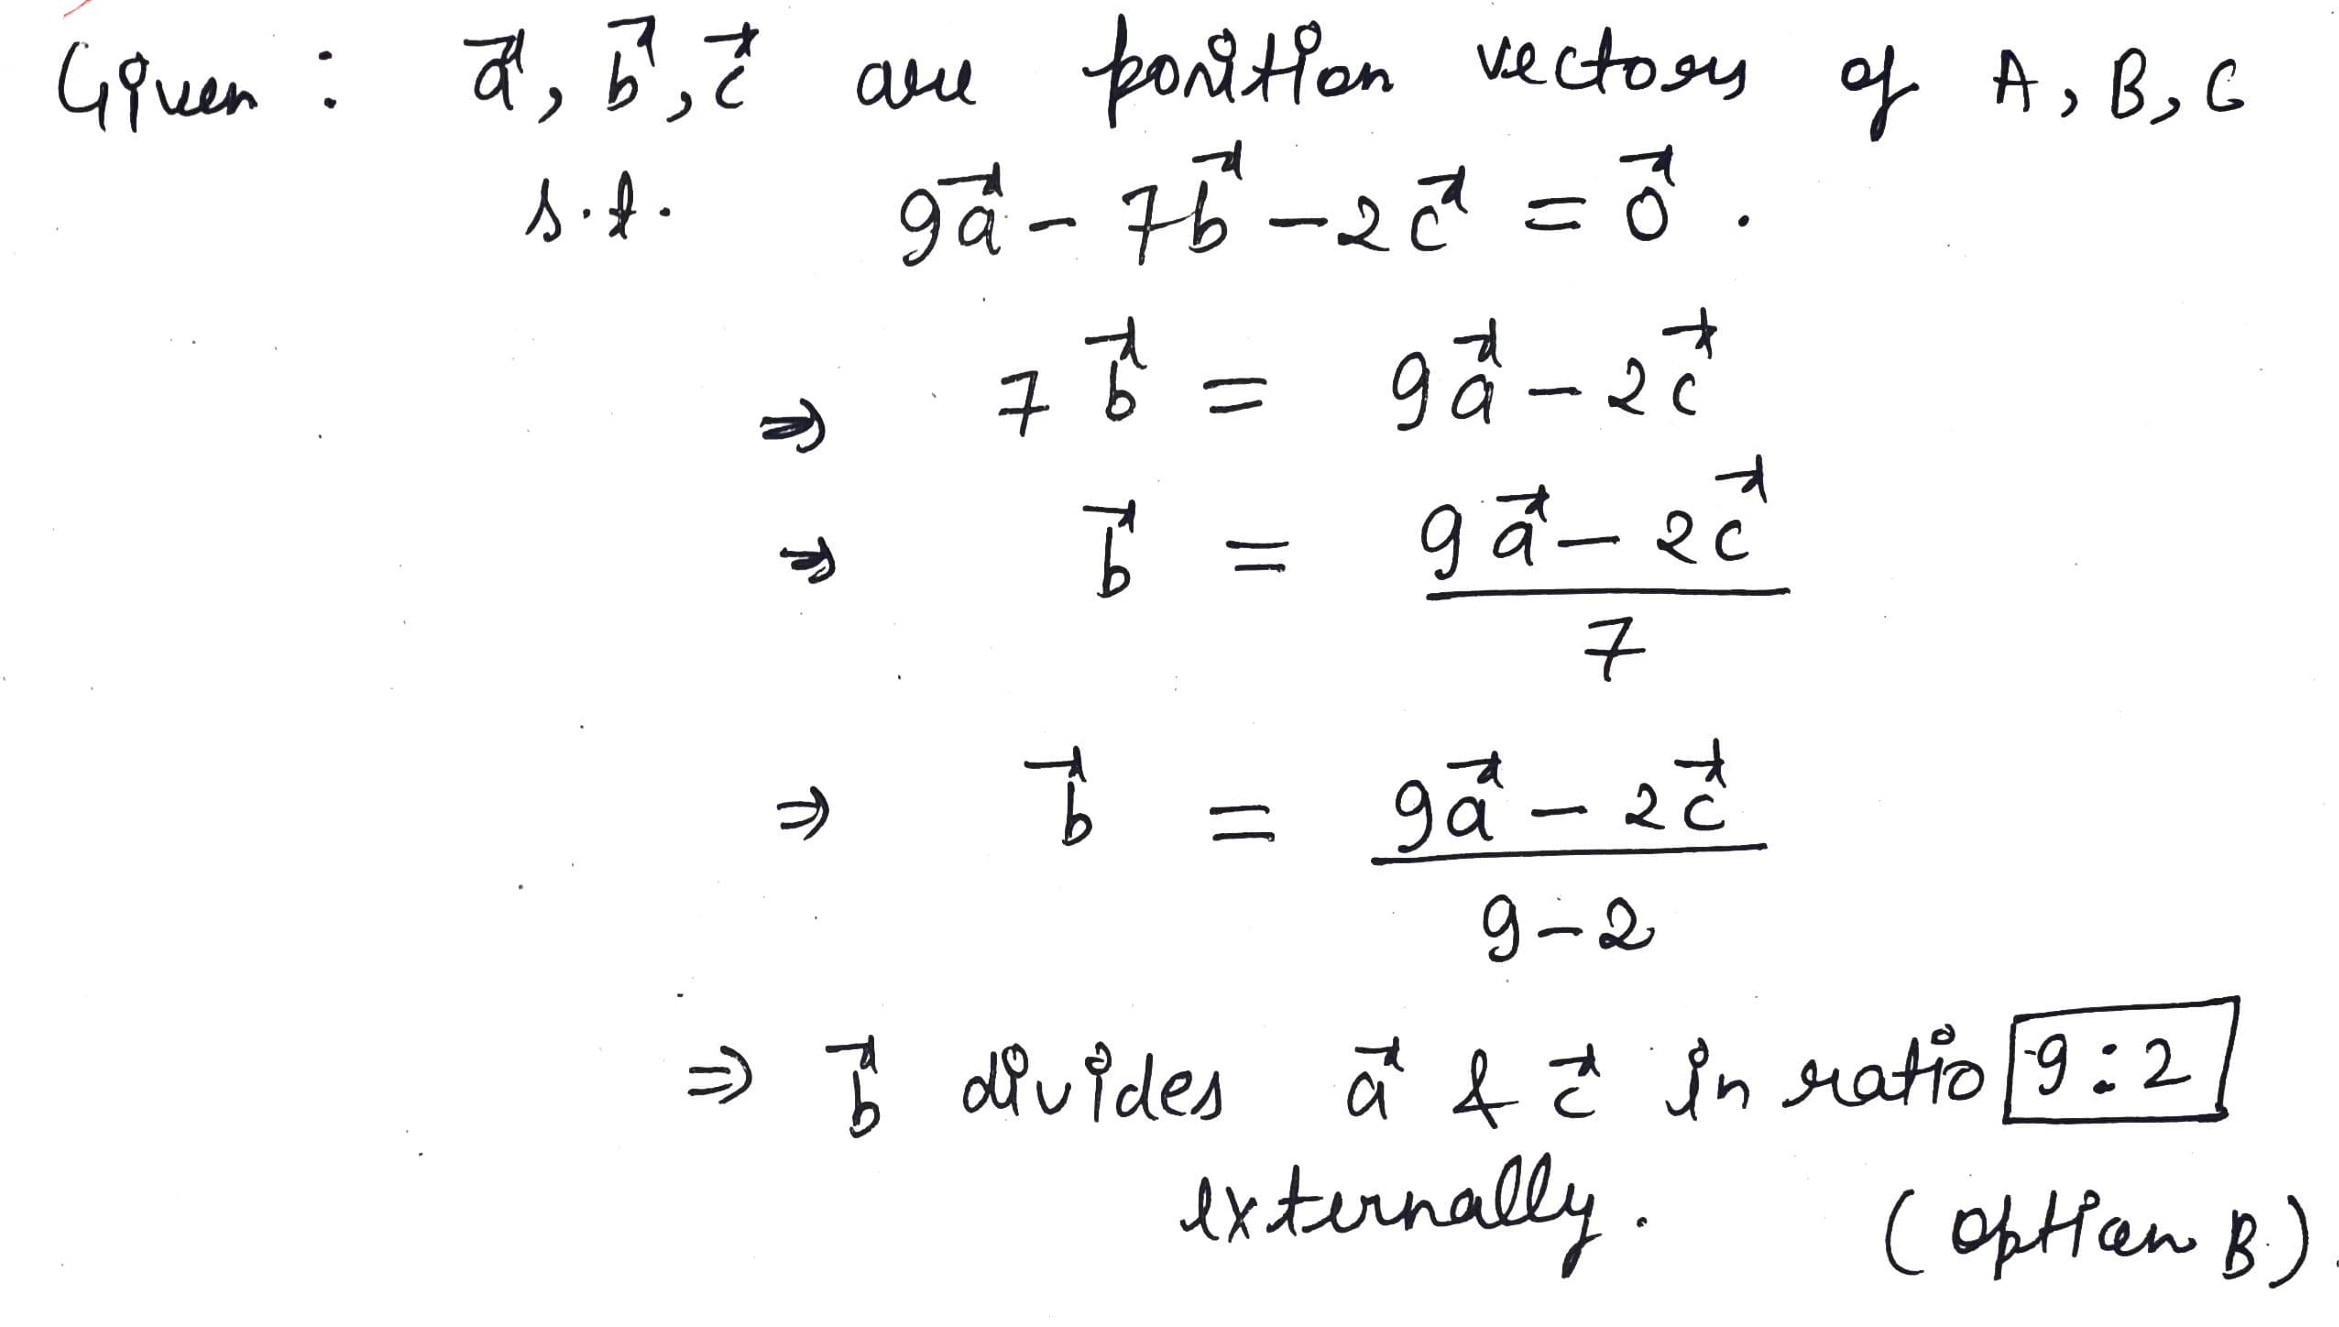 Given : a⃗, b⃗, c⃗ are position vectors of A, B, C
s.t. 9a⃗ - 7b⃗ - 2c⃗ = 0⃗ .
⇒ 7b⃗ = 9a⃗ - 2c⃗
⇒ b⃗ = (9a⃗ - 2c⃗)/7
⇒ b⃗ = (9a⃗ - 2c⃗)/(9-2)
⇒ b⃗ divides a⃗ & c⃗ in ratio 9:2
externally. (option B)